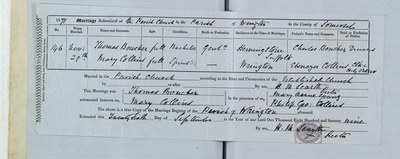 1879 Marriage Solemnized at the Parish Church in the Parish of Wrington in the County of Somerset
No. When Married. Name and Surname. Age. Condition. Rank or Profession. Residence at the Time of Marriage. Father's Name and Surname. Rank or Profession of Father.
196 Thomas Boucher full Bachelor Gentn. Suffolk Charles Boucher
29th Mary Collins full Spinster Wrington Ebenezer Collins
Married in the Parish Church according to the Rites and Ceremonies of the Established Church
This Marriage was solemnized between us, Thomas Boucher Mary Collins in the presence of us, Philip Geo. Collins
The above is a true Copy of the Marriage Register of the Parish of Wrington
Extracted this day of September in the Year of our Lord One Thousand Eight Hundred and Seventy nine
By me, H. M. Scarth Rector